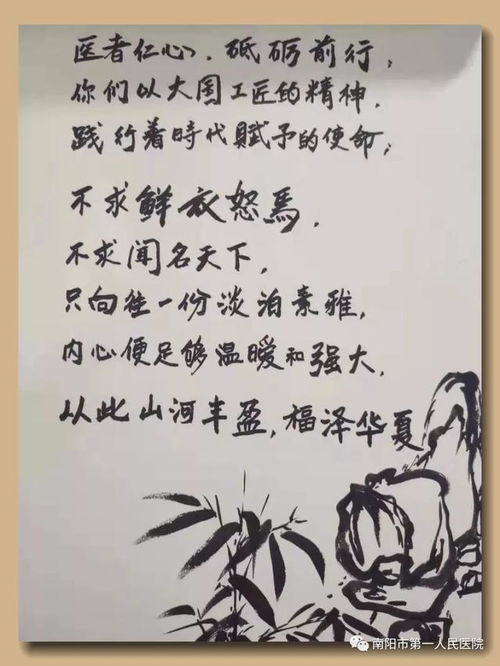 医者仁心、砥砺前行，
你们以大国工匠的精神，
践行着時代赋予的使命；
不求鲜衣怒焉，
不求闻名天下，
只向往一份淡泊素雅，
内心便足够温暖和强大，
以此山河丰盈，福泽华夏
南阳市第一人民医院